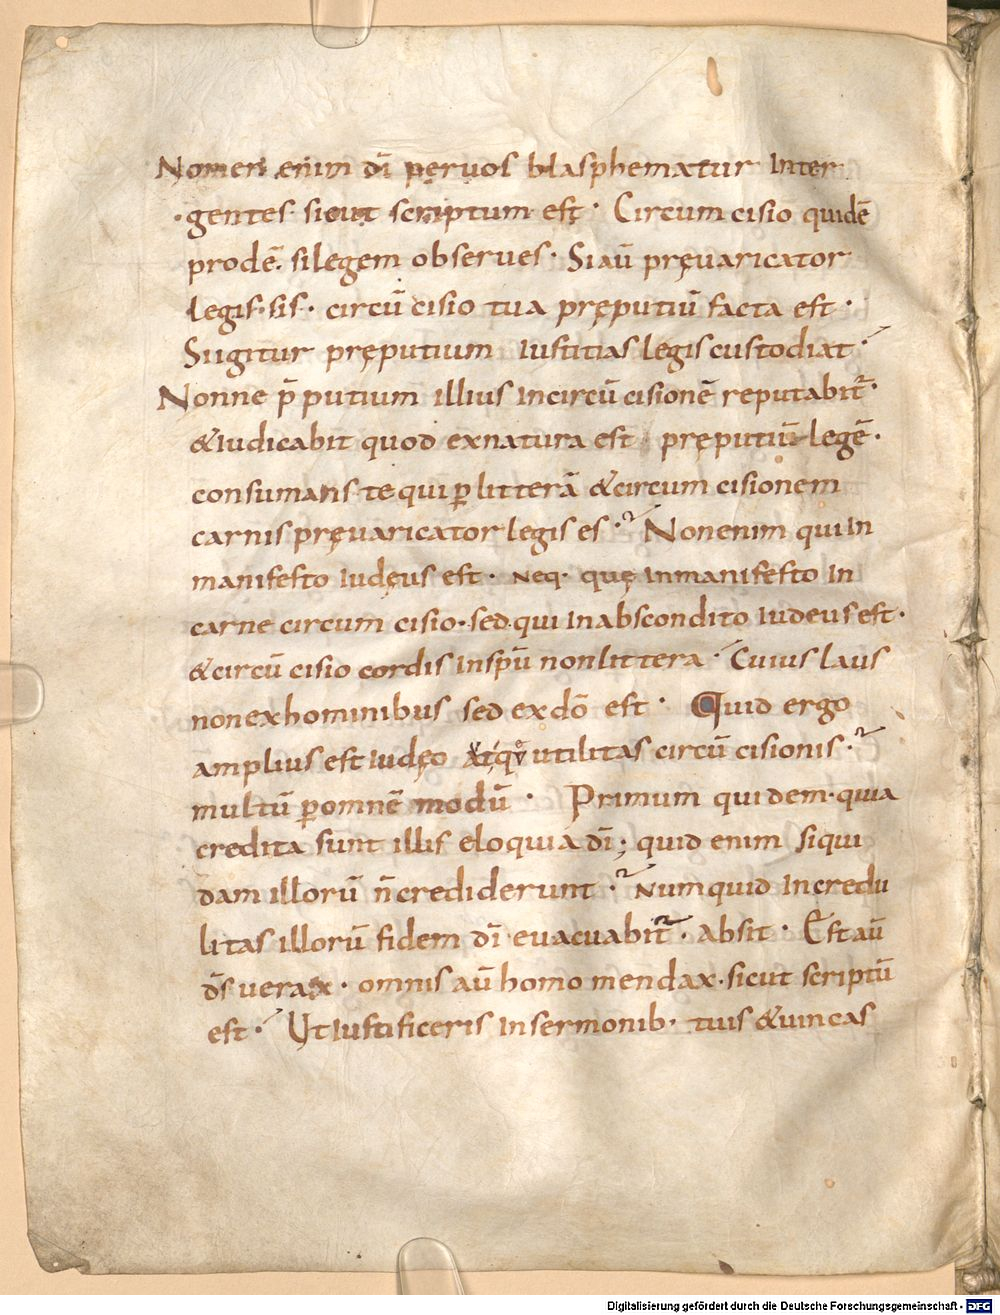 Nomen enim dī ꝑ ęruos blasphematur Inter
·gentes· sicut scriptum est· Circum cisio quidē
prodē· silegem observes· Siaū pręuaricator
legis·sis· circū cisio tua pręputiū facta est·
Siigitur pręputium Iustitias legis custodiat·
Nonne p̄ putium illius Incircū cisionē reputabit᷑·
&Iudicabit quod exnatura est pręputiū legē·
consumans te qui ꝑ litterā &circum cisionem
carnis pręuaricator legis es· Nonenim qui In
manifesto Iudęus est· neq· quę Inmanifesto In
carne circum cisio· sed qui Inabscondito Iudeus est·
&circū cisio cordis Inspū nonlittera· Cuius laus
nonexhominibus sed exdō est· Quid ergo
amplius est Iudęo utilitas circū cisionis·
multū ꝑomnē modū· Primum quidem·quia
credita sunt illis eloquia dī; quid enim siqui
dam illorū n̄crediderunt· Numquid Incredu
litas illorū fidem dī euacuabit᷑· absit· Est aū
d̄s uerax· omnis aū homo mendax·sicut scriptū
est· Ut Iustificeris Insermonib· tuis &uincas
Digitalisierung gefördert durch die Deutsche Forschungsgemeinschaft - DFG